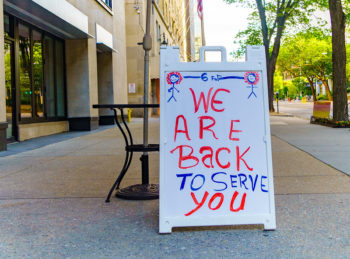 6 FT
WE
ARE
BACK
TO SERVE
YOU